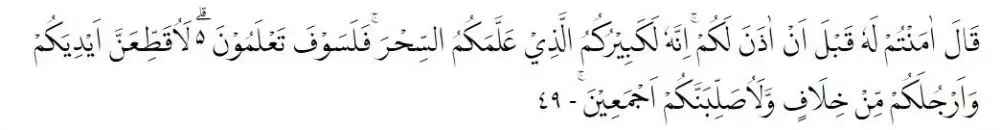 قَالَ اٰمَنْتُمْ لَهٗ قَبْلَ اَنْ اٰذَنَ لَكُمْۚ اِنَّهٗ لَكَبِيْرُكُمُ الَّذِيْ عَلَّمَكُمُ السِّحْرَۚ فَلَسَوْفَ تَعْلَمُوْنَ ەۗ لَاُقَطِّعَنَّ اَيْدِيَكُمْ
وَاَرْجُلَكُمْ مِّنْ خِلَافٍ وَّلَاُصَلِّبَنَّكُمْ اَجْمَعِيْنَۚ - ٤٩